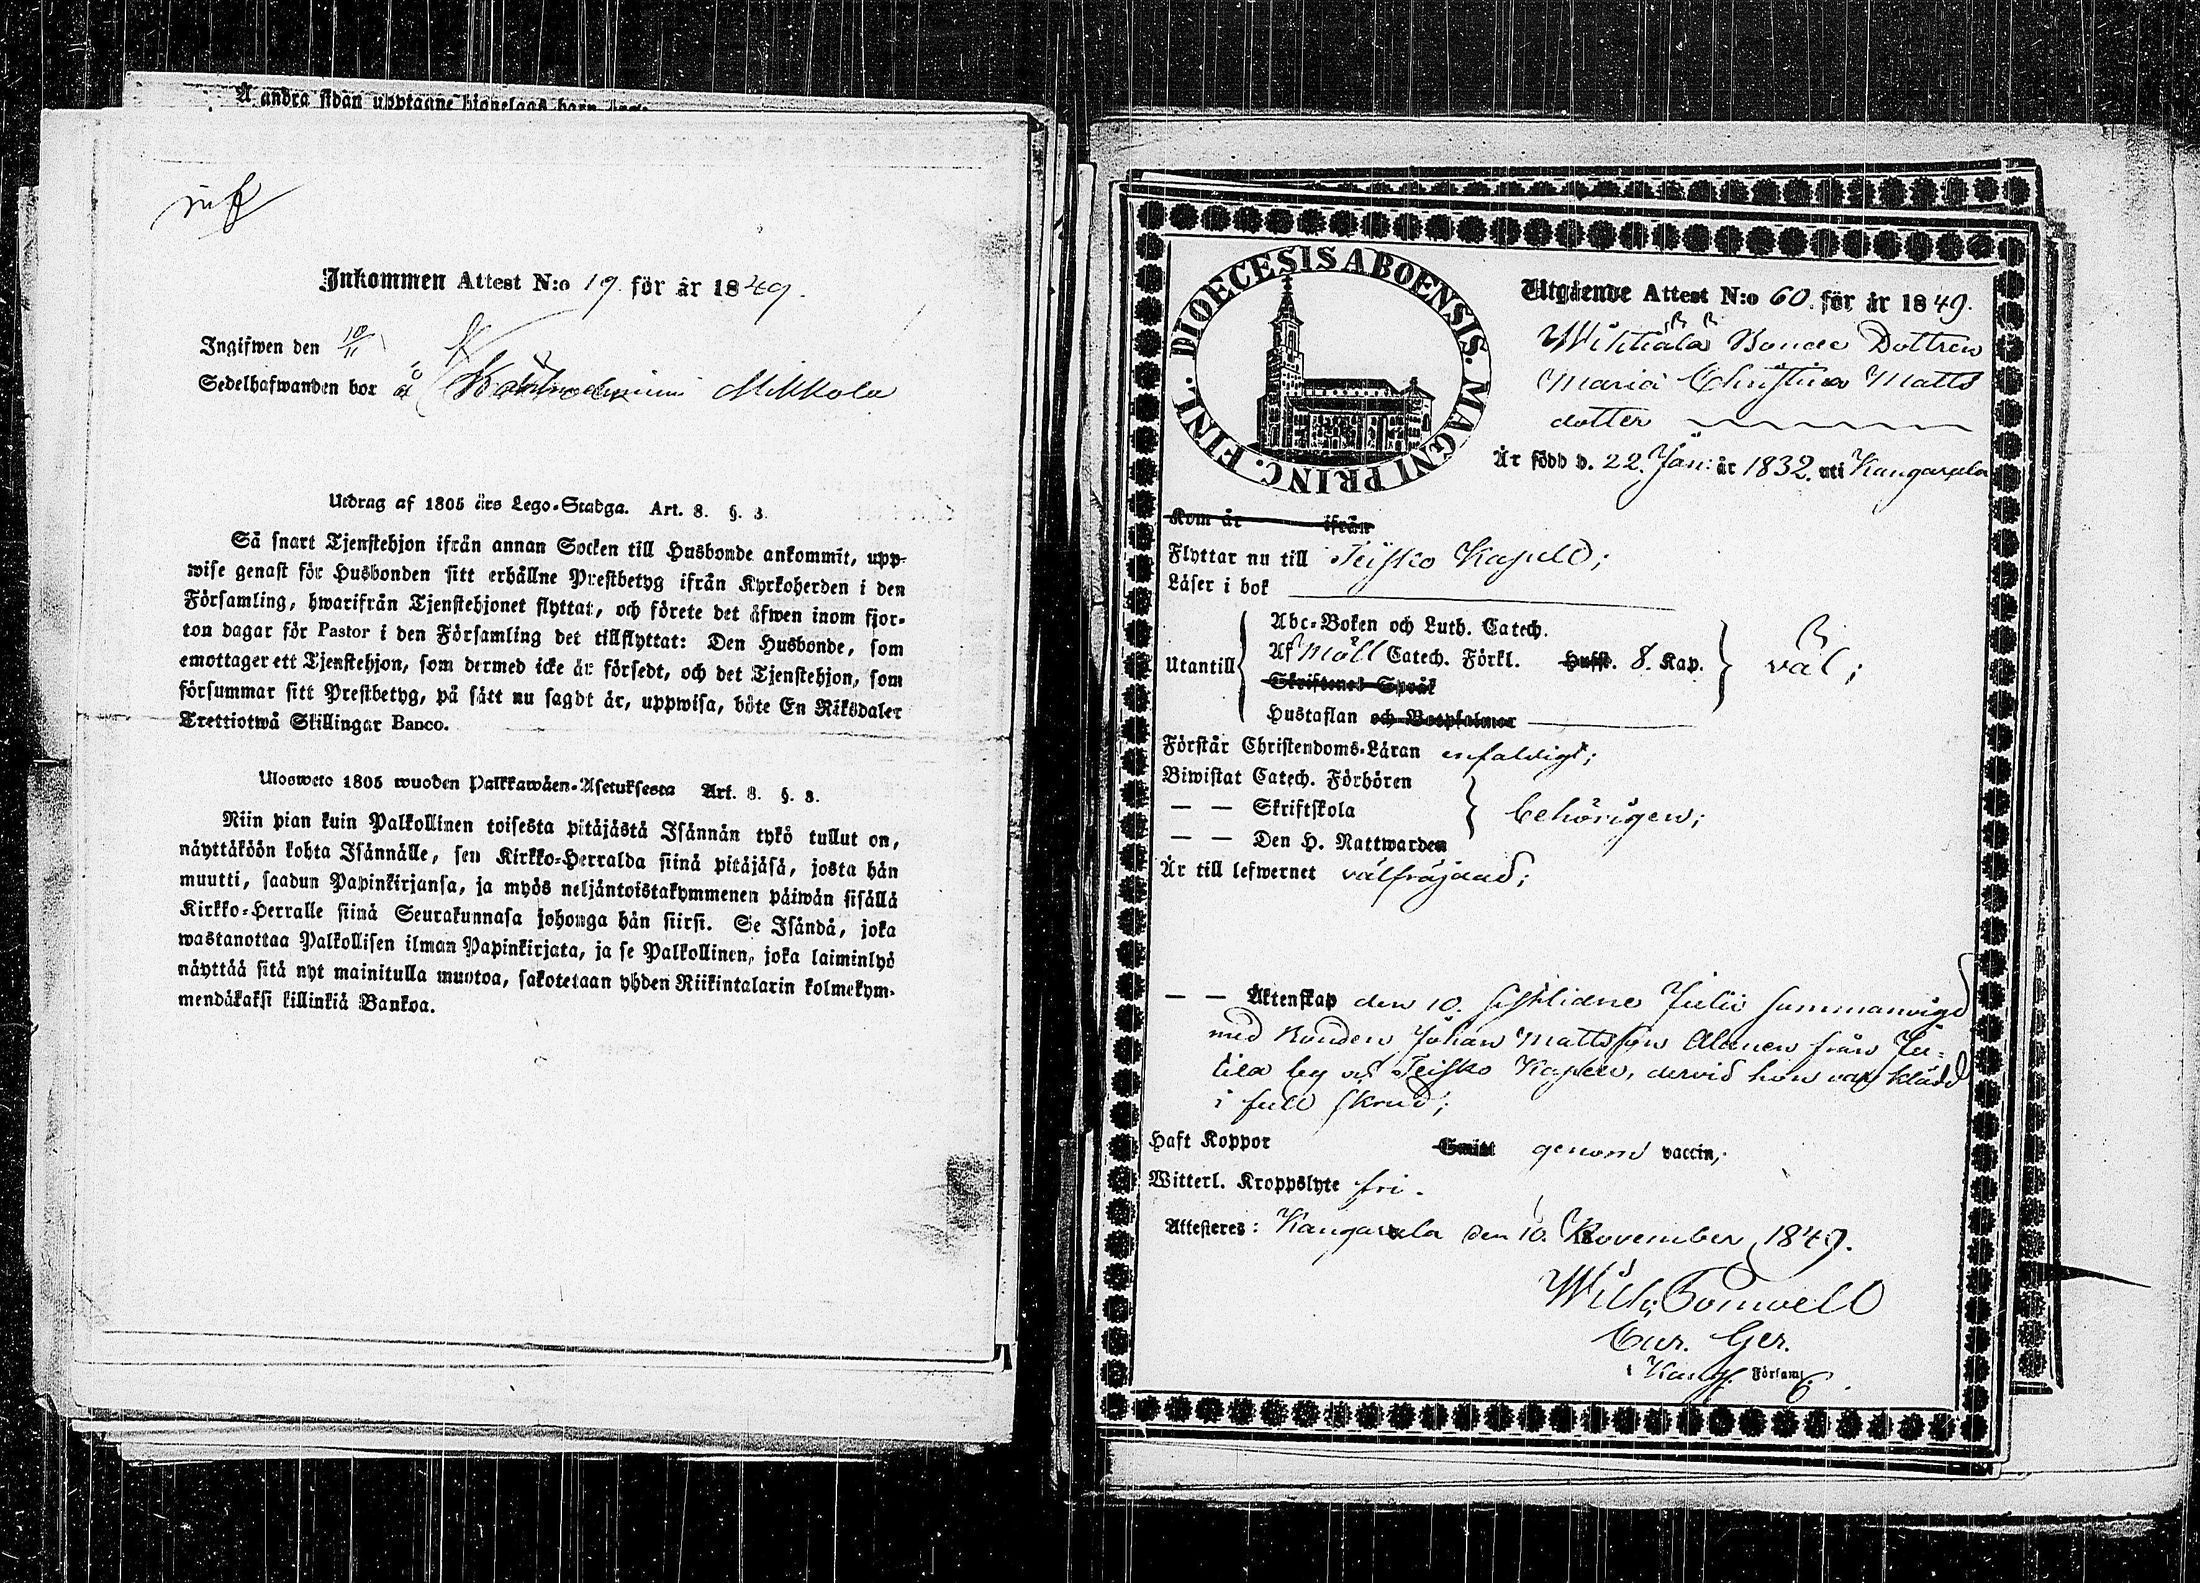 Å andra sidan upptagne
Inkommen Attest N:o 19 för år 1849.
Ingifwen den 10/11
Sedelhafwanden bor å Mikkola
Utdrag af 1805 års Lego-Stadga. Art. 8. §. 3.
Så snart Tjenstehjon ifrån annan Socken till Husbonde ankommit, upp-
wise genast för Husbonden sitt erhållne Prestbetyg ifrån Kyrkoherden i den
Församling, hwarifrån Tjenstehjonet flyttat, och förete det äfwen inom fjor-
ton dagar för Pastor i den Församling det tillflyttat: Den Husbonde, som
emottager ett Tjenstehjon, som dermed icke är försedt, och det Tjenstehjon, som
försummar sitt Prestbetyg, på sätt nu sagdt är, uppwisa, böte En Riksdaler
Trettiotwå Skillingar Banco.
Ulosweto 1805 wuoden Palkkawäen-Asetuksesta Art. 8. §. 3.
Niin pian kuin Palkollinen toisesta pitäjästä Isännän tykö tullut on,
näyttäköön kohta Isännälle, sen Kirkko-Herralda siinä pitäjäsä, josta hän
muutti, saadun Papinkirjansa, ja myös neljäntoistakymmenen päiwän sisällä
Kirkko-Herralle siinä Seurakunnasa johonga hän siirsi. Se Isändä, joka
wastanottaa Palkollisen ilman Papinkirjata, ja se Palkollinen, joka laiminlyö
näyttää sitä nyt mainitulla muotoa, sakotetaan yhden Riikintalarin kolmekym-
mendäkaksi killinkiä Bankoa.
DIOECESIS ABOENSIS. MAGNI PRINC. FINL.
Utgående Attest N:o 60 för år 1849.
Bonde Dottren
Maria Christina Matts
dotter
Är född d. 22. Jan: år 1832. uti Kangasala
Kom år ifrån
Flyttar nu till Teisko Kapell;
Läser i bok
Abc-Boken och Luth. Catech.
Utantill Af Möll Catech. Förkl. Husst. 8. Kap. väl;
Skriftenes Språk
Hustaflan och Botpsalmer
Förstår Christendoms-Läran enfaldigt;
Biwistat Catech. Förhören
— — Skriftskola behörigen;
— — Den H. Nattwarden
Är till lefwernet välfräjdad;
— — Äktenskap den 10. sistlidne Julii sammanvigd
med Bonden Johan Mattsson Alanen från Ju-
tila by af Teisko Kapell, dervid hon var klädd
i full skrud;
Haft Koppor genom vaccin,
Witterl. Kroppslyte fri.
Attesteres: Kangasala den 10. November 1849.
Wilh:
Cur. Ger.
i Kang. Församl